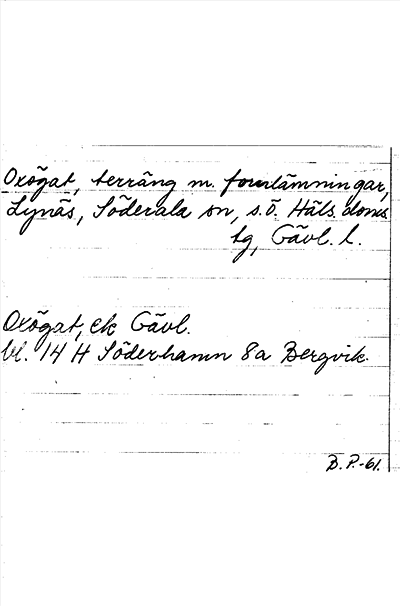 Oxögat, terräng m. fornlämningar,
Lynäs, Söderala sn, s.ö. Häls. doms
tg, Gävl. l.
Oxögat, ek Gävl.
bl. 14 H Söderhamn 8a Bergvik.
B.P.-61.